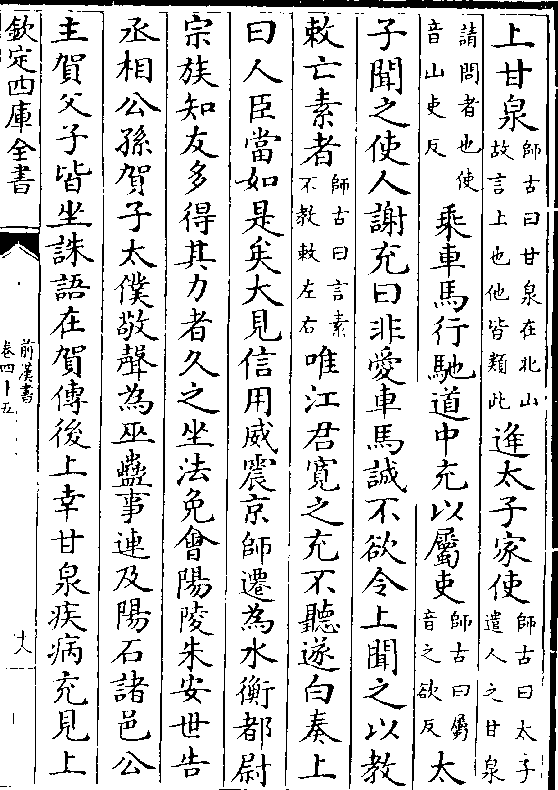 上甘泉師古曰甘泉在北山故言上也他皆類此逢太子家使師古曰太子遣人之甘泉
請問者也使音山吏反乗車馬行馳道中充以屬吏師古曰屬音之欲反太
子聞之使人謝充曰非愛車馬誠不欲令上聞之以教
敕亡素者師古曰言素不教敕左右唯江君寛之充不聽遂白奏上
曰人臣當如是矣大見信用威震京師遷為水衡都尉
宗族知友多得其力者久之坐法免會陽陵朱安世告
丞相公孫賀子太僕敬聲為巫蠱事連及陽石諸邑公
主賀父子皆坐誅語在賀傳後上幸甘泉疾病充見上
欽定四庫全書
前漢書
卷四十五